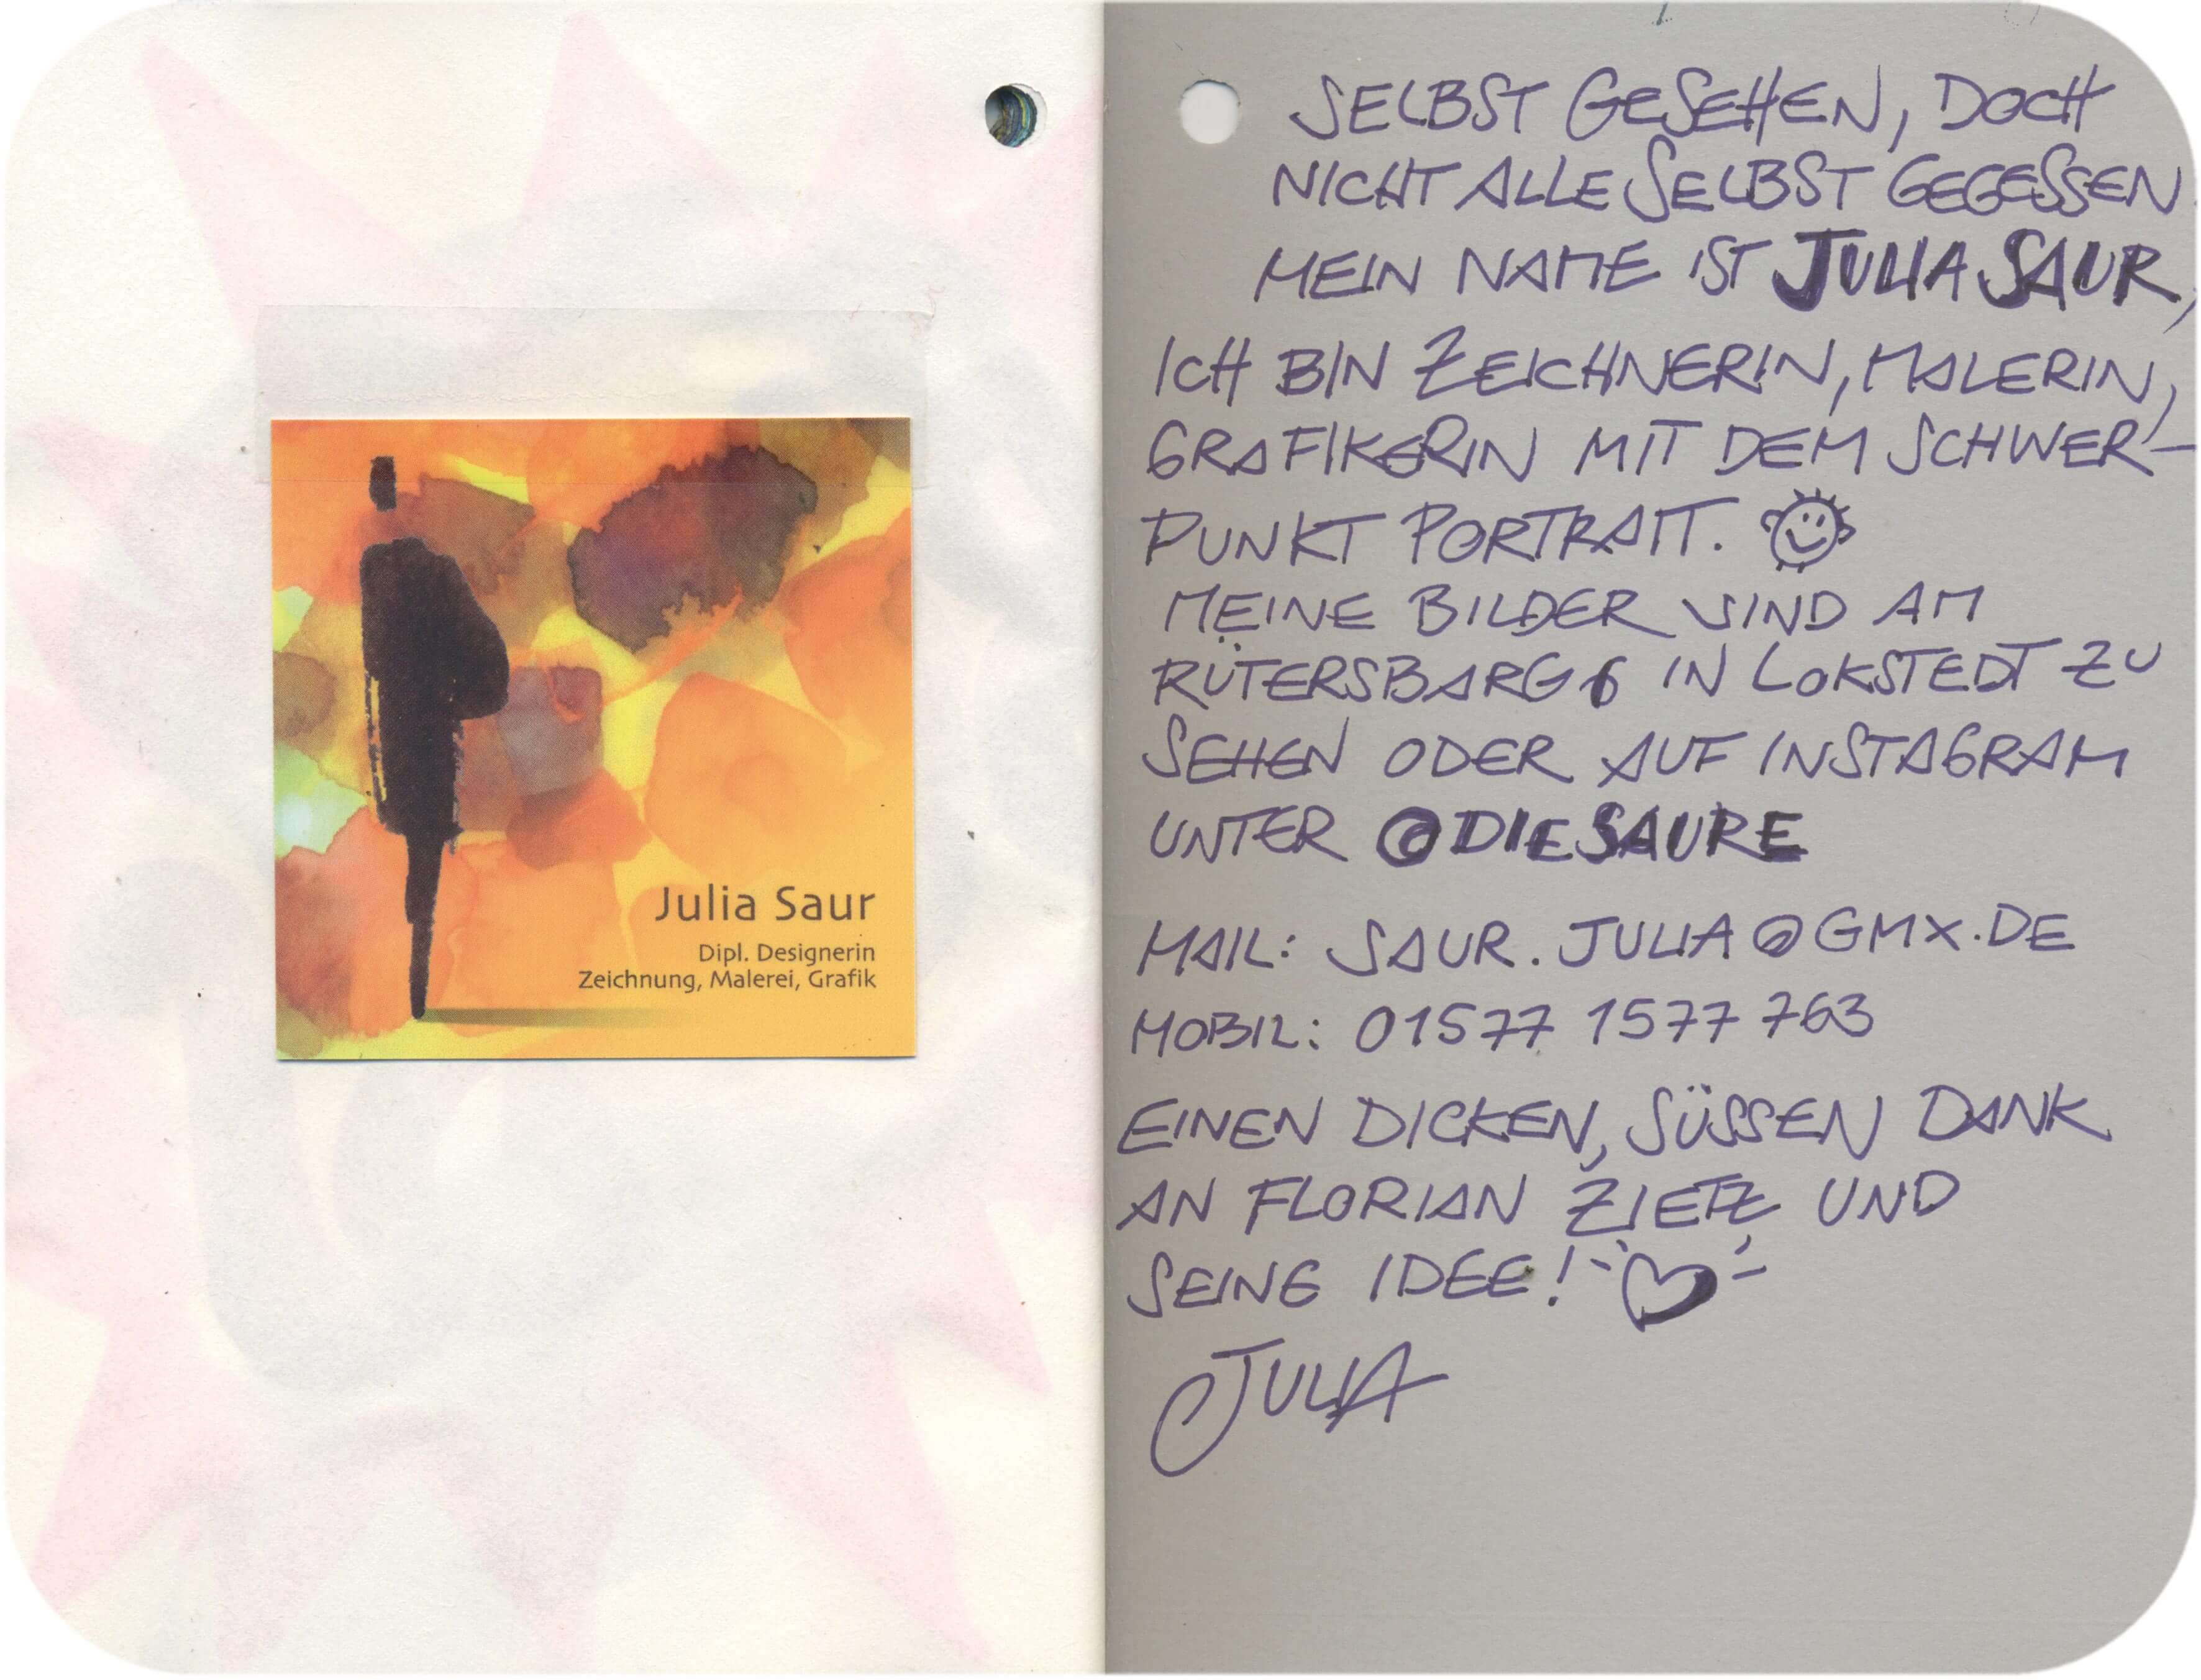 Julia Saur
Dipl. Designerin
Zeichnung, Malerei, Grafik
SELBST GESEHEN, DOCH
NICHT ALLE SELBST GEGESSEN.
MEIN NAME IST JULIA SAUR,
ICH BIN ZEICHNERIN, MALERIN,
GRAFIKERIN MIT DEM SCHWER-
PUNKT PORTRAIT.
MEINE BILDER SIND AM
RÜTERSBARG 6 IN LOKSTEDT ZU
SEHEN ODER AUF INSTAGRAM
UNTER @DIESAURE
MAIL: SAUR.JULIA@GMX.DE
MOBIL: 01577 1577 763
EINEN DICKEN, SÜSSEN DANK
AN FLORIAN ZIETZ UND
SEINE IDEE!
JULIA